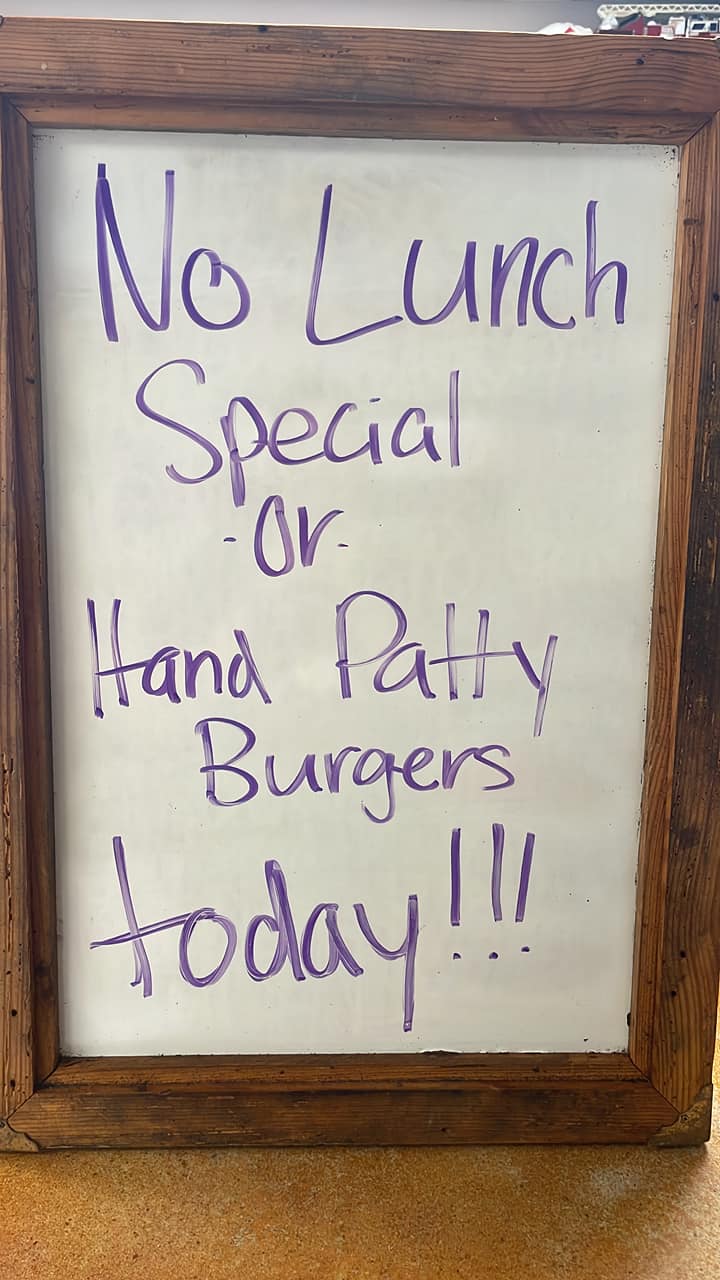 No Lunch
Special
-Or-
Hand Patty
Burgers
today!!!